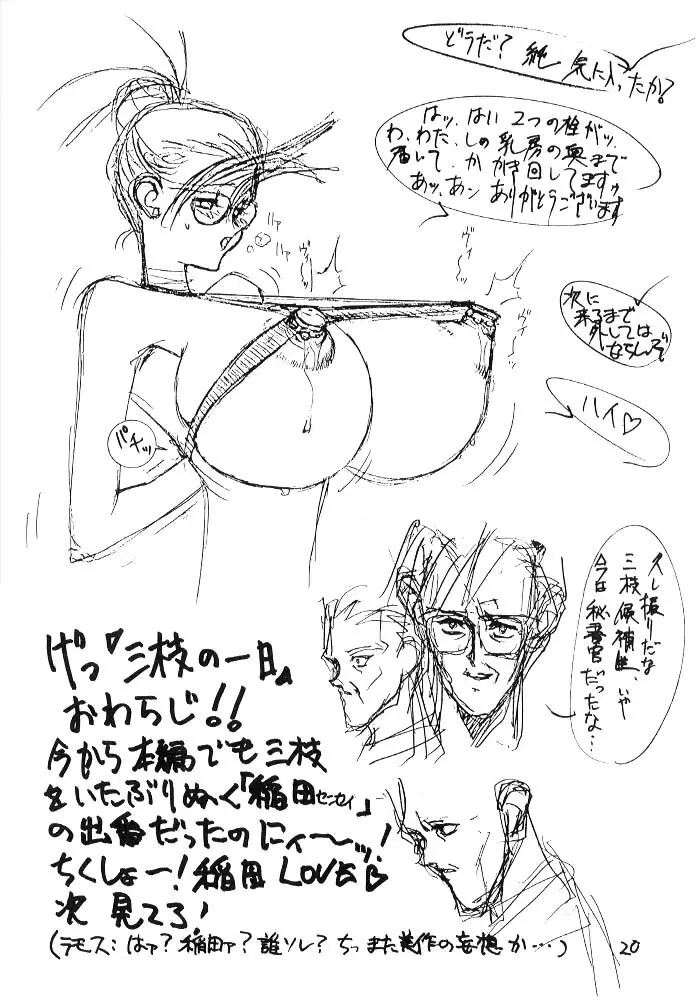 どうだ? 純 気に入ったか?
はッ、はい 2つの栓がッ、
わ、わた、しの乳房の奥まで
届いて、か かき回してますッ
あッ、あン ありがとうございます
ヴィ〜
ヴィ〜
ハァ
ハァ
次に
来るまで
外しては
ならんぞ
ハイ♡
パチッ
久し振りだな
三枝候補生、いや
今は秘書官だったな…
げっ『三枝の一日』
おわらじ!!
今から本編でも三枝
をいたぶりぬく「稲田センセイ」
の出番だったのにィ〜ッ!
ちくしょー!稲田 LOVE♡
次 見てろ!
(デモス:はァ?稲田ァ?誰ソレ?ちっまた
作の妄想か…)
20